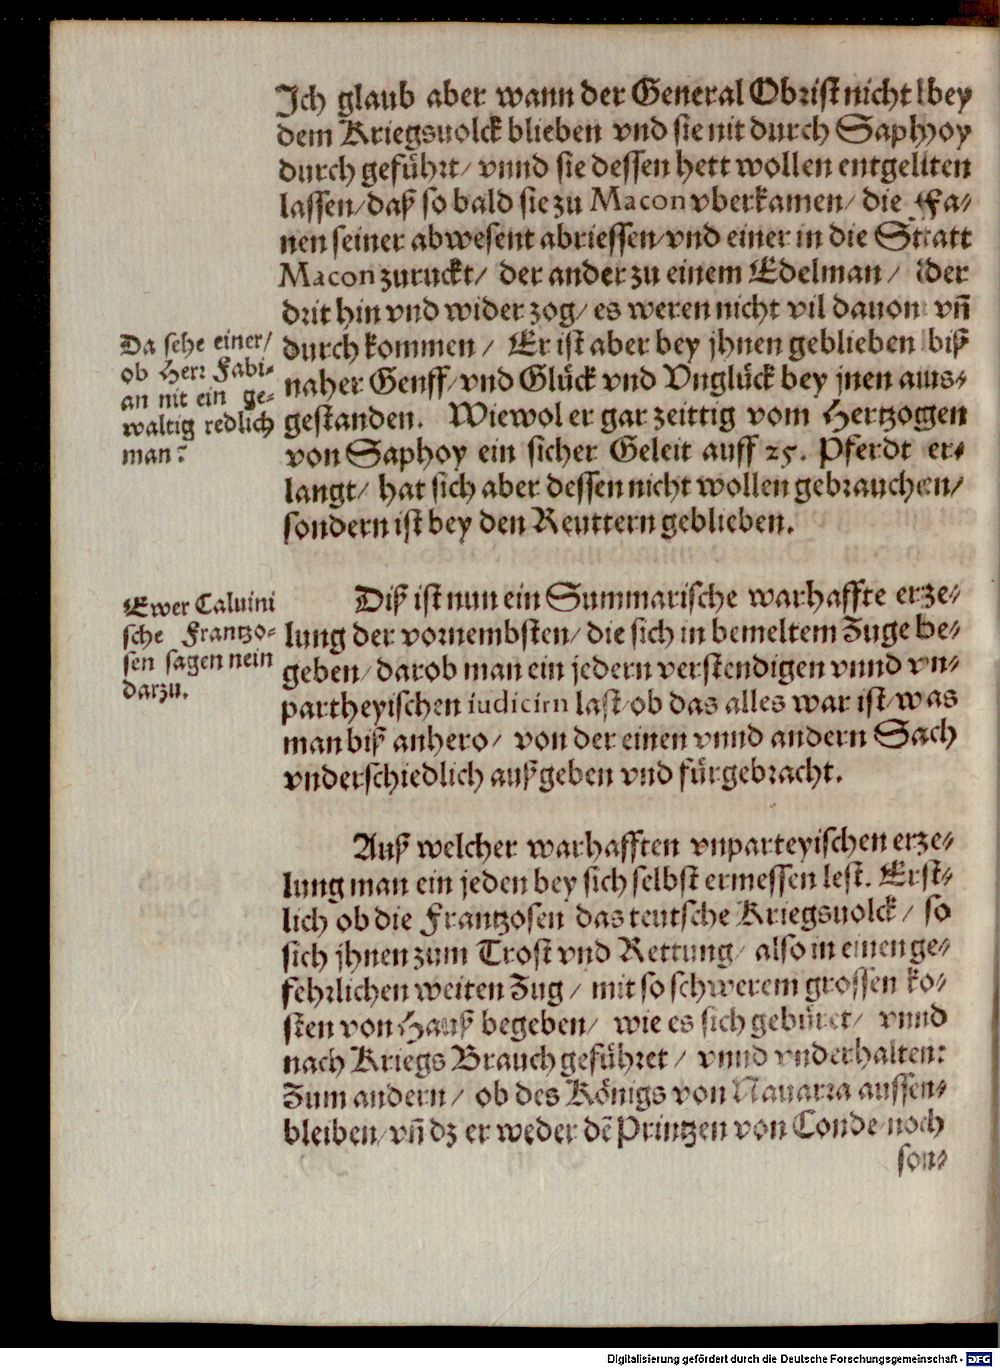 Ich glaub aber wann der General Obrist nicht bey
dem Kriegsuolck blieben vnd sie nit durch Saphoy
durch geführt/ vnnd sie dessen hett wollen entgellten
lassen/ daß so bald sie zu Macon vberkamen/ die Fa-
nen seiner abwesent abriessen/ vnd einer in die Statt
Macon zuruckt/ der ander zu einem Edelman/ der
drit hin vnd wider zog/ es weren nicht vil dauon vñ
durch kommen/ Er ist aber bey jhnen geblieben biß
naher Genff/ vnd Glück vnd Vnglück bey jnen aus-
gestanden. Wiewol er gar zeittig vom Hertzogen
von Saphoy ein sicher Geleit auff 25. Pferdt er-
langt/ hat sich aber dessen nicht wollen gebrauchen/
sondern ist bey den Reuttern geblieben.
Da sehe einer/
ob Herr Fabi-
an nit ein ge-
waltig redlich
man?
Diß ist nun ein Summarische warhaffte erze-
lung der vornembsten/ die sich in bemeltem Zuge be-
geben/ darob man ein jedern verstendigen vnnd vn-
partheyischen iudiciern last/ ob das alles war ist/ was
man biß anhero/ von der einen vnnd andern Sach
vnderschiedlich außgeben vnd fürgebracht.
Ewer Caluini
sche Frantzo-
sen sagen nein
darzu.
Auß welcher warhafften vnparteyischen erze-
lung man ein jeden bey sich selbst ermessen lest. Erst-
lich ob die Frantzosen das teutsche Kriegsuolck/ so
sich jhnen zum Trost vnd Rettung/ also in einen ge-
fehrlichen weiten Zug/ mit so schwerem grossen ko-
sten von Hauß begeben/ wie es sich gebüret/ vnnd
nach Kriegs Brauch geführet/ vnnd vnderhalten:
Zum andern/ ob des Königs von Nauarra aussen-
bleiben/ vñ dz er weder dē Printzen von Conde noch
son-
Digitalisierung gefördert durch die Deutsche Forschungsgemeinschaft - DFG